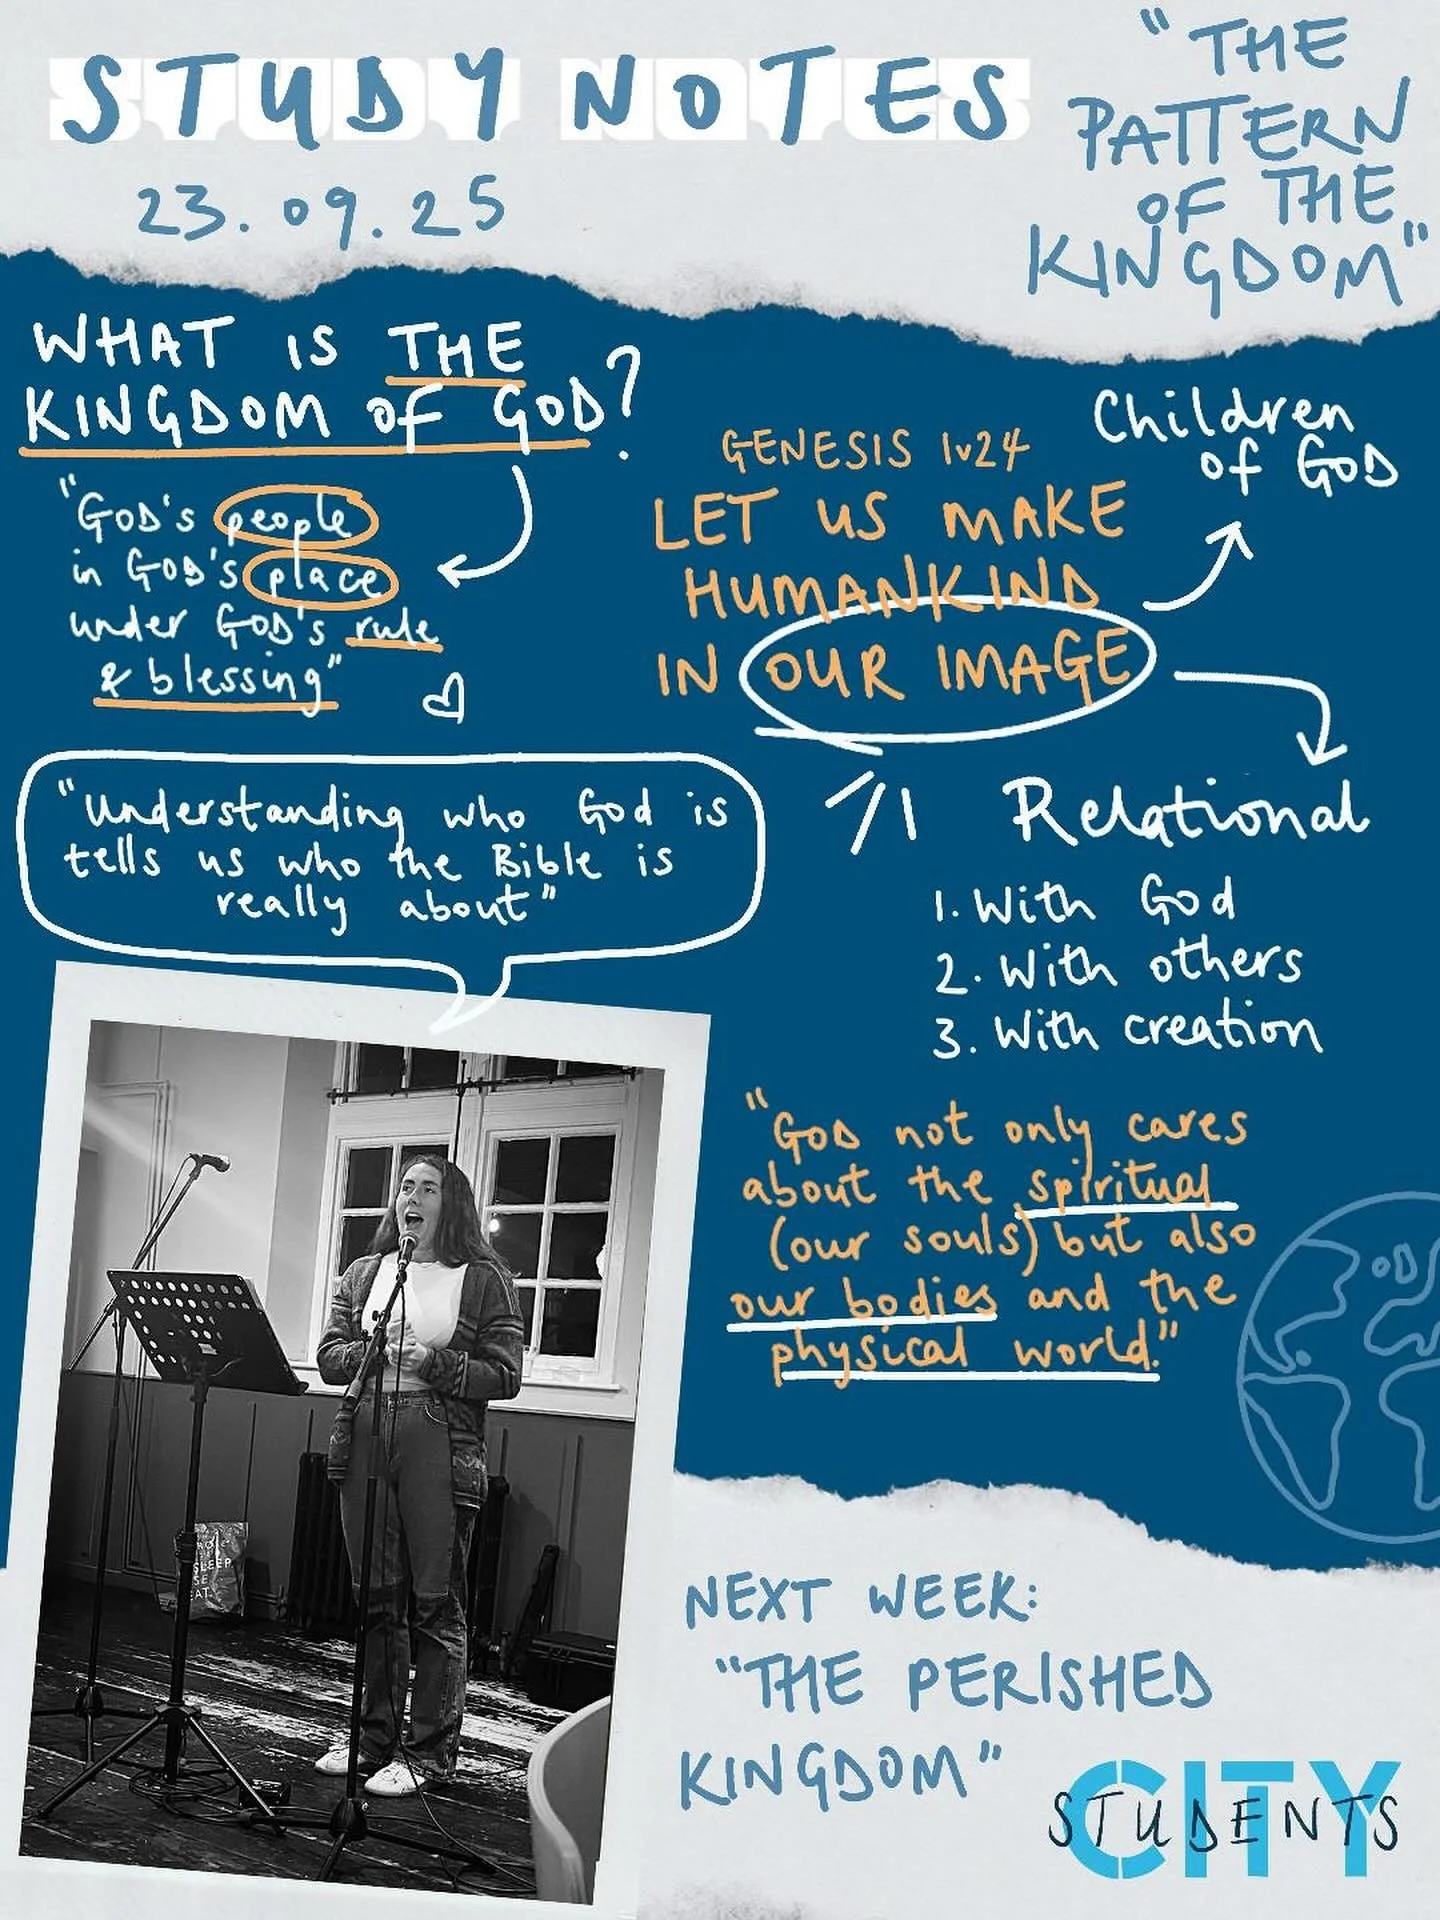 STUDY NOTES
23.09.25
"THE
PATTERN
OF THE
KINGDOM"
WHAT IS THE
KINGDOM OF GOD?
"GOD's people
in GOD's place
under GOD's rule
& blessing"
GENESIS 1v24
LET US MAKE
HUMANKIND
IN OUR IMAGE
Children
of GOD
Relational
1. With God
2. With others
3. With creation
"Understanding who God is
tells us who the Bible is
really about"
"GOD not only cares
about the spiritual
(our souls) but also
our bodies and the
physical world."
SLEEP
NEXT WEEK:
"THE PERISHED
KINGDOM"
CITY
STUDENTS